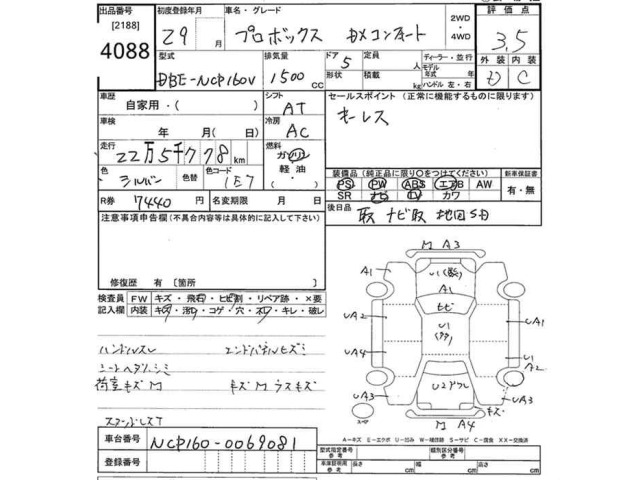 出品番号
[2188]
4088
初度登録年月
29 月
車名・グレード
プロボックス DXコンフォート
2WD・4WD
評価点
3.5
外装 内装
D C
型式
DBE-NCP160V
排気量
1500 CC
ドア 5
形状
定員 人
積載 kg
ディーラー・並行
モデル年式 年式
ハンドル 左・右
車歴
自家用・( )
シフト
AT
セールスポイント (正常に機能するものに限ります)
キーレス
車検
年 月( 日)
冷房
AC
走行
22万5千778 km
燃料
ガソリン
軽油・
色
シルバー
色替
色コード
1E7
装備品 (純正品に限り○をつけてください)
PS PW ABS エアB AW
SR ナビ TV カワ
新車保証書
有・無
R券 7440円
名変期限 月 日
後日品
取 ナビ取 地図SD
注意事項申告欄 (不具合内容等は具体的に記入して下さい)
修復歴 有 [箇所 ]
検査員記入欄
FW キズ・飛石・ヒビ割・リペア跡・×要
内装 キズ・汚れ・コゲ・穴・ネジ・キレ・破レ
ハンドルスレ エンドパネルヒズミ
シートヘタリ、シミ
荷室キズM キズM ラスキズ
車台番号 NCP160-0069081
登録番号
M A3
A1
U1
A1
ヒビ
UA2
U1
UA1
UA4
U1
A2
UA3
U2アワレ
UA3
キズ
M A4
スペア
A－キズ E－エクボ U－凹み W－補修跡 S－サビ C－腐食 XX－交換済
型式指定番号
類別区分番号
車庫証明用参考
長さ cm
幅 cm
高さ cm